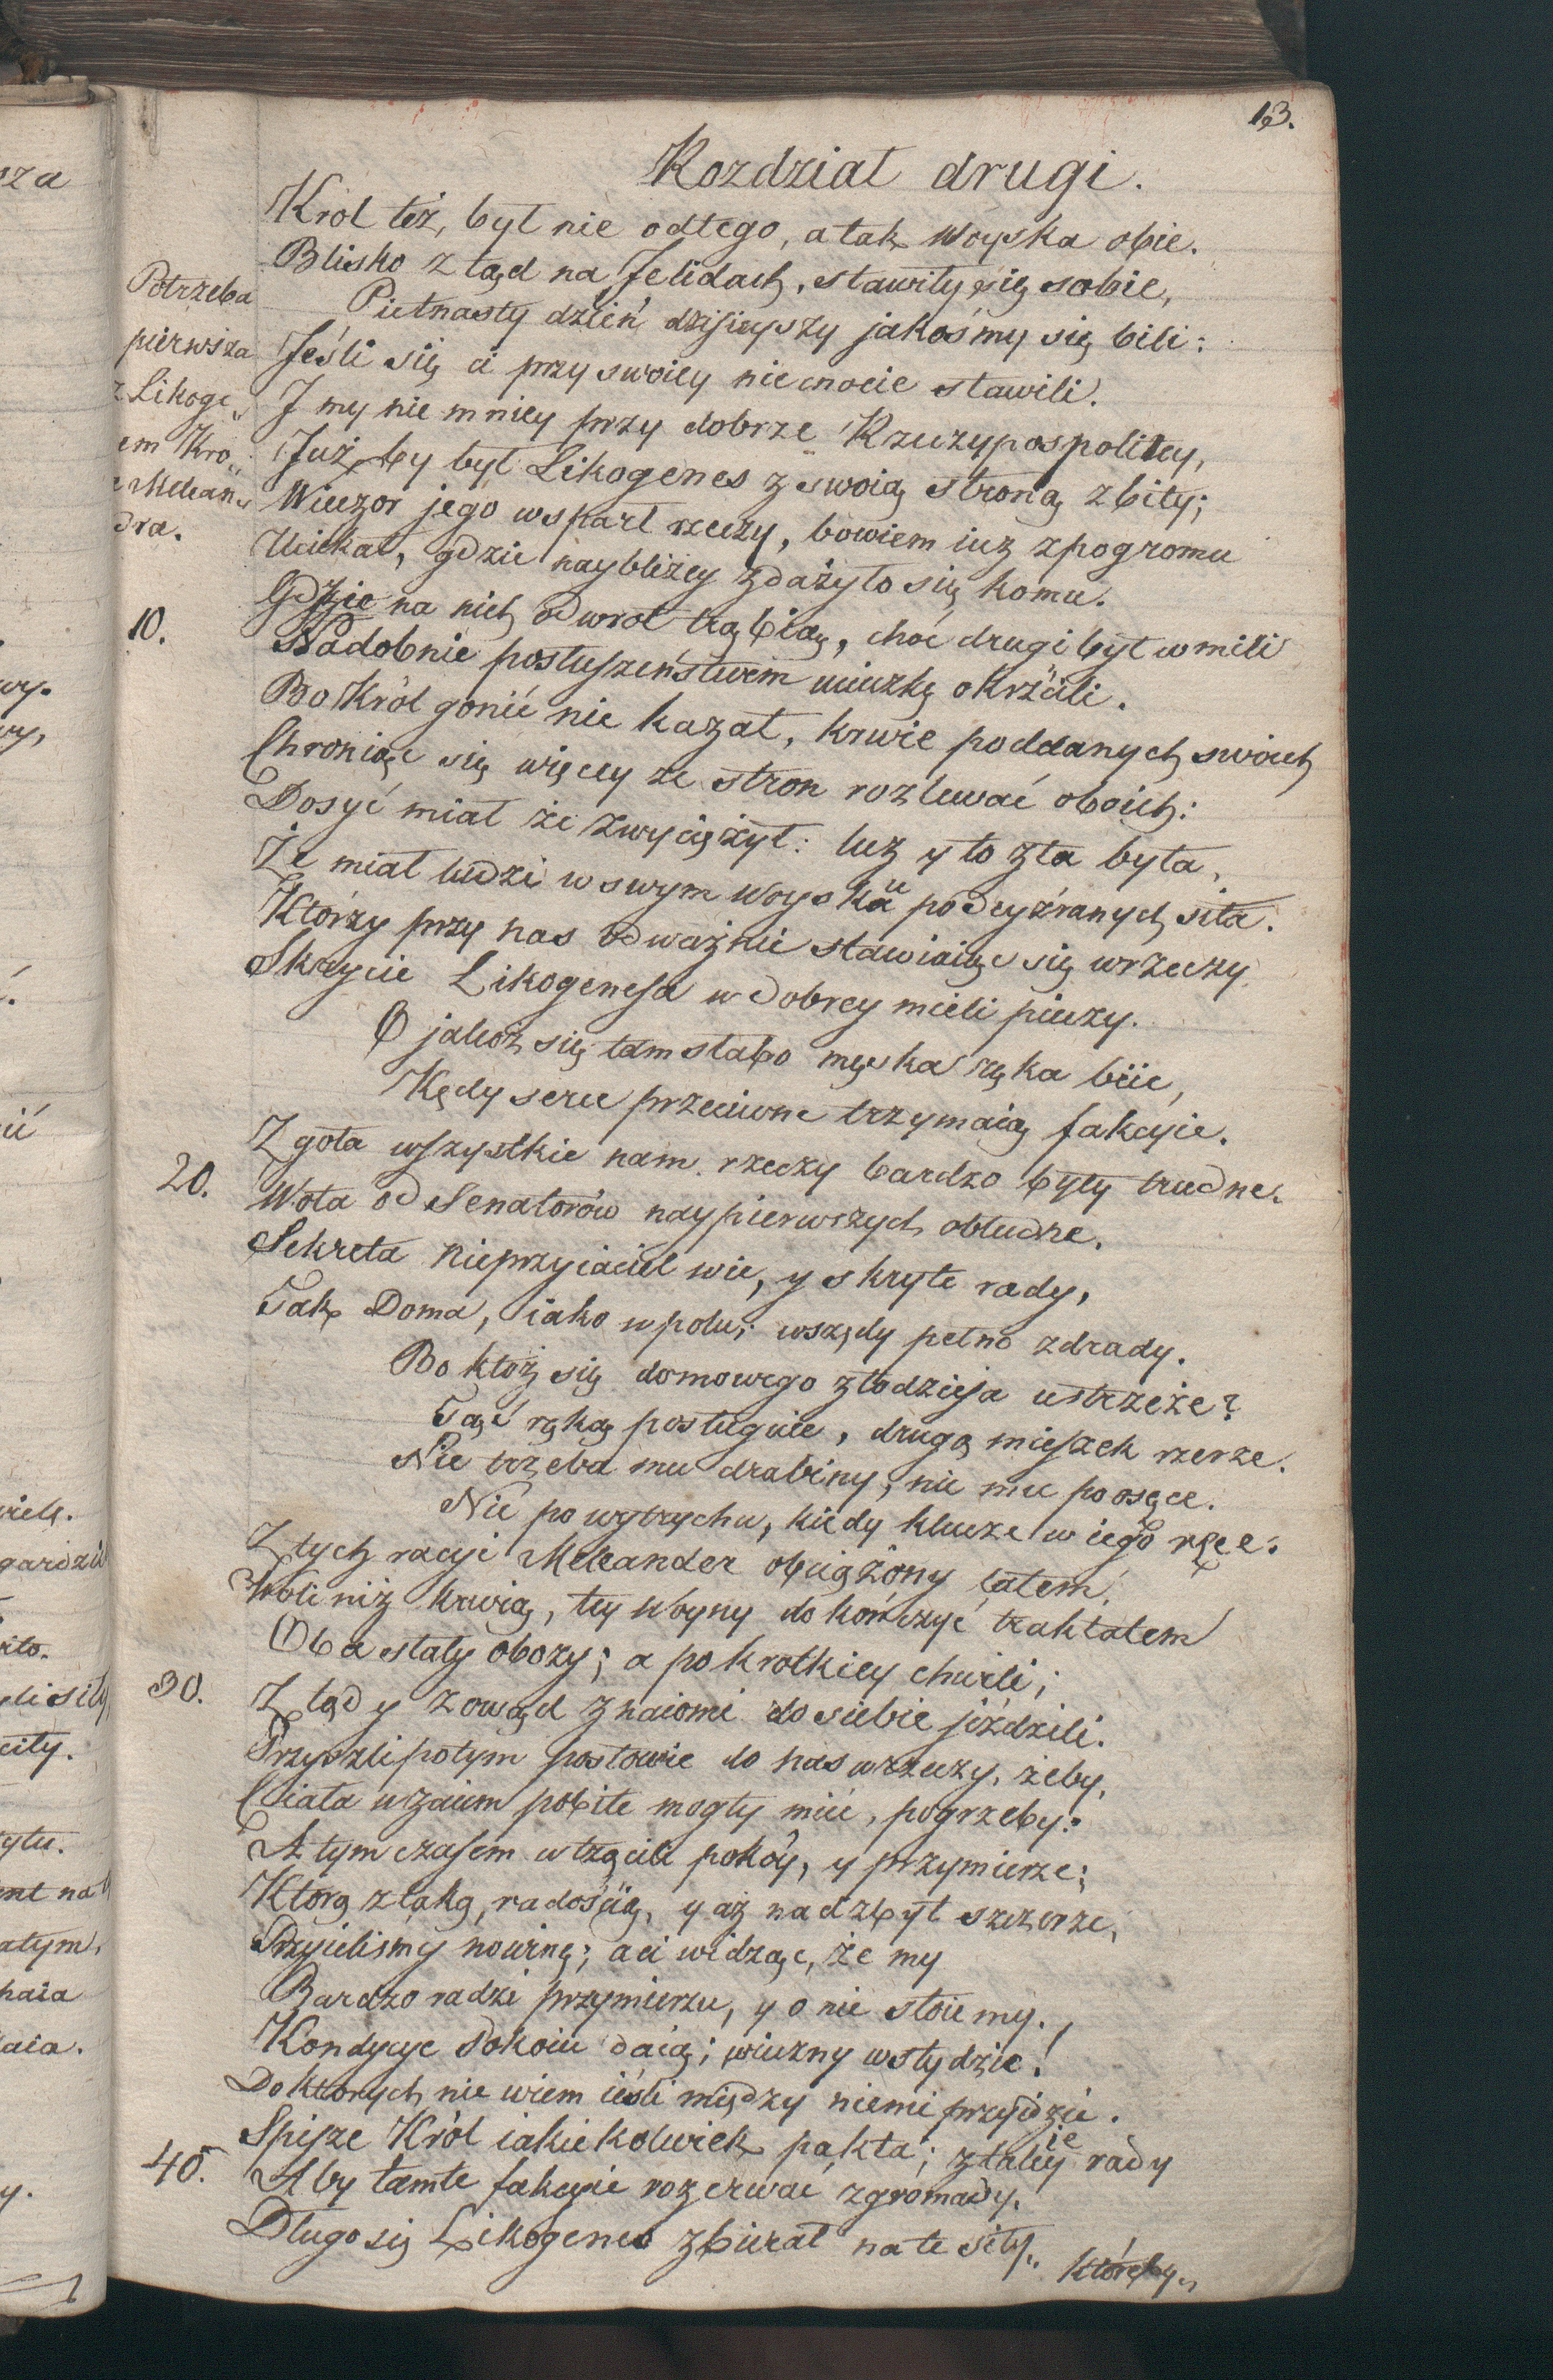 13.
Rozdział drugi.
Krol też, był nie odtego, a tak Woyska obie.
Blisko z tąd na Jelidach, stawiły się sobie,
Potrzeba
Pietnasty dzień dzisieyszy jakośmy się bili:
pierwsza
Jeśli się ci przy swoiey niecnocie stawili.
z Likoge„
J my nie mniey przy dobrze Rzeczypospolitey,
em Kro„
Już by był Likogenes z swoią stroną zbity;
e Melean„
Wieczor jego wsparł rzeczy, bowiem iuż z pogromu
dra.
Uciekał, gdzie naybliżey zdażyło się komu.
Gdzie na nich odwrot trąbią, choć drugi był w mili
10.
Nadobnie posłuszeństwem ucieczkę okrzcili.
Bo Król gonić nie kazał, krwie poddanych swoich
Chroniąc się więcey ze stron rozlewać oboich:
Dosyć miał że zwyciężył: lecz y to zła była,
Że miał ludzi w swym Woysku podeyźranych siła.
Którzy przy nas odważnie stawiaiąc się w rzeczy
Skrycie Likogenesa w dobrey mieli pieczy.
O jakoż się tam słabo męska ręka biie,
Kędy serce przeciwne trzymaią fakcyie.
Zgoła wszystkie nam rzeczy bardzo były trudne.
20.
Wota od Senatorów naypierwszych obłudne.
Sekreta nieprzyiaciel wie, y skryte rady,
Tak Doma, iako w polu; wszędy pełno zdrady.
Bo ktoż się domowego złodzieja ustrzeże?
Tąć ręką posługuie, drugą mieszek rzeże.
Nie trzeba mu drabiny, nie mu po osęce.
Nic po wytrychu, kiedy klucze w iego ręce.
Z tych racyi Meleander obciążony latem,
Woli niż krwią, tey Woyny dokończyć traktatem
Oba stały obozy; a po krotkiey chwili;
30.
Z tąd y z owąd znaiomi do siebie jeździli.
Przyszli potym posłowie do nas w rzeczy, żeby,
Ciała wzaiem pobite mogły mieć, pogrzeby:
A tym czasem wtrącili pokóy, y przymierze;
Ktorą z taką, radością, y aż nadzbyt szczerze,
Przyieliśmy nowinę; a ci widząc, że my
Bardzo radzi przymierzu, y o nie stoiemy.,
Kondycye Pokoiu daią; wieczny wstydzie!
Do ktorych nie wiem ieśli między niemi przyidzie.
Spisze Król iakiekolwiek pakta; złakiey rady
40.
Aby tamte fakcyie rozerwać z gromady.
Długo się Likogenes zbierał na te siły„
któreby„